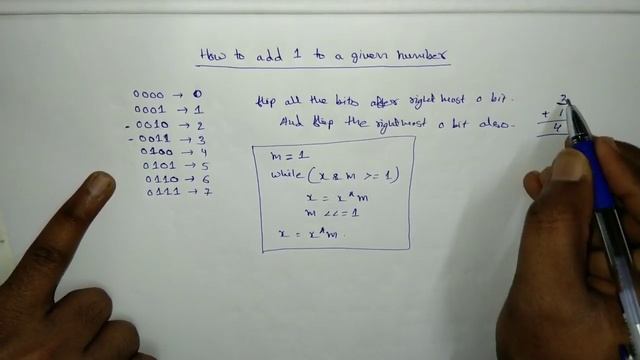 How to add 1 to a given number
0000 → 0
0001 → 1
- 0010 → 2
- 0011 → 3
0100 → 4
0101 → 5
0110 → 6
0111 → 7
flip all the bits after right most 0 bit.
And flip the rightmost 0 bit also.
m = 1
while (x & m >= 1)
x = x ^ m
m <<= 1
x = x ^ m.
3
+ 1
4